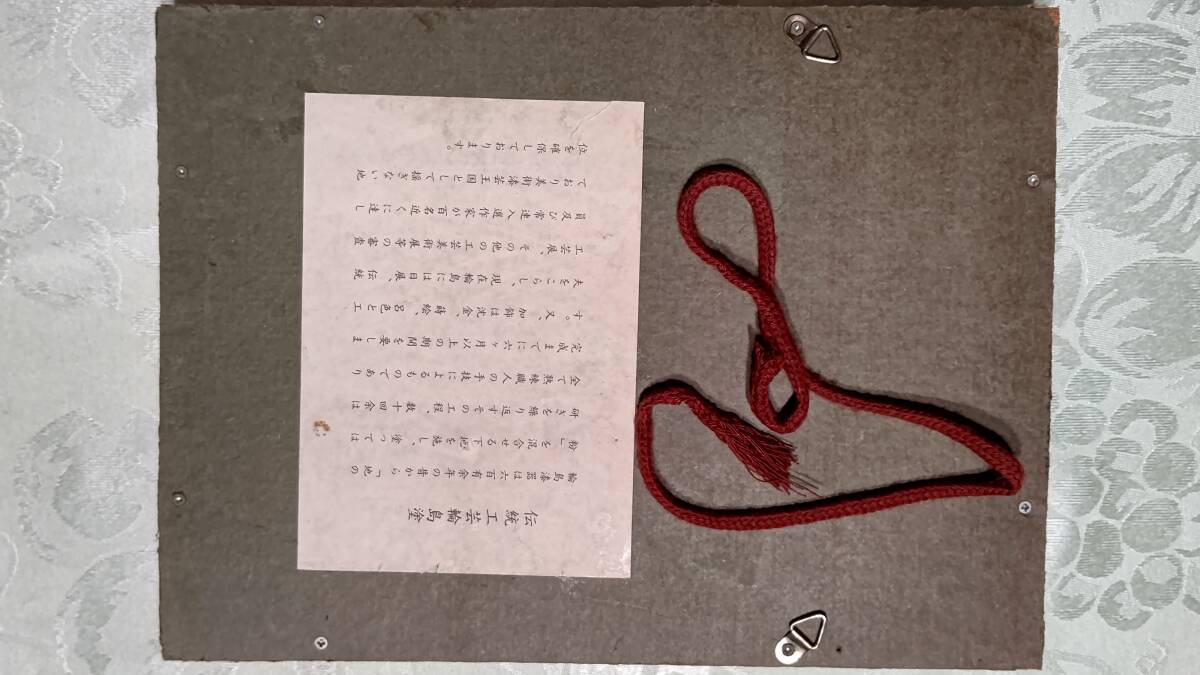 伝統工芸輪島塗
輪島漆器は六百有余年の昔から「地の
粉」を混合せる下地を施し、塗っては
研ぎを繰り返すその工程、数十回余は
全て熟練職人の手技によるものであり
完成までに六ヶ月以上の期間を要しま
す。又、加飾は沈金、蒔絵、呂色と工
夫をこらし、現在輪島には日展、伝統
工芸展、その他の工芸美術展等の審査
員及び常連入選作家が百名近くに達し
ており美術漆芸王国として揺ぎない地
位を確保しております。